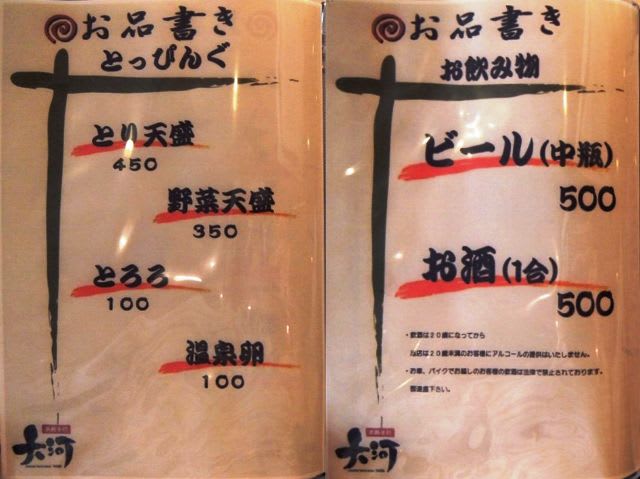 お品書き
とっぴんぐ
とり天盛
450
野菜天盛
350
とろろ
100
温泉卵
100
大河
お品書き
お飲み物
ビール(中瓶)
500
お酒(1合)
500
・飲酒は20歳になってから
当店は20歳未満のお客様にアルコールの提供はいたしません。
・お車、バイクでお越しのお客様の飲酒は法律で禁止されております。
御遠慮下さい。
大河